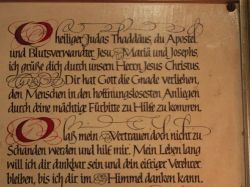 O
heiliger Judas Thaddäus, du Apostel
und Blutsverwandter Jesu, Mariä und Josephs,
ich grüße dich durch unsern Herrn Jesus Christus.
Dir hat Gott die Gnade verliehen,
den Menschen in den hoffnungslosesten Anliegen
durch deine mächtige Fürbitte zu Hilfe zu kommen.
Laß mein Vertrauen doch nicht zu
Schanden werden und hilf mir. Mein Leben lang
will ich dir dankbar sein und dein eifriger Verehrer
bleiben, bis ich dir im Himmel danken kann.